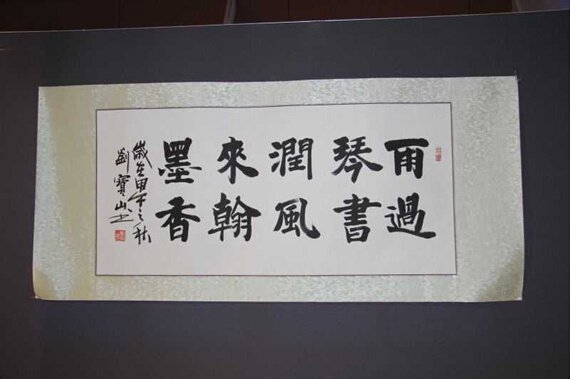 雨過
琴書
潤風
來翰
墨香
歲在甲午之秋
劉寶山